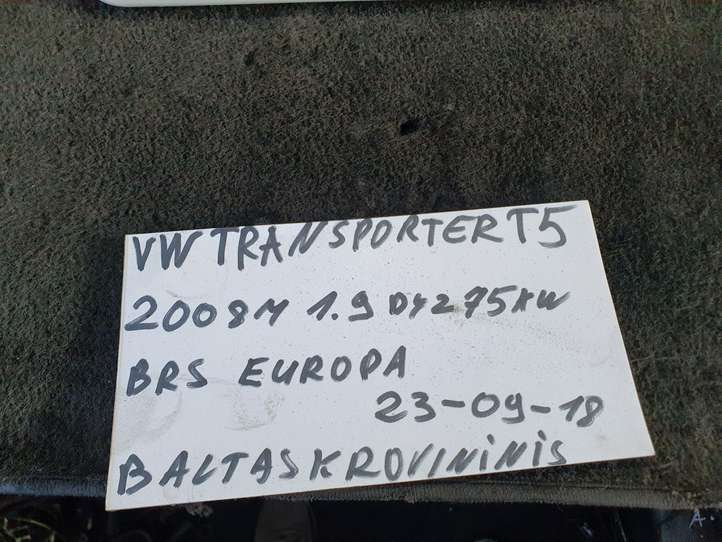 VW TRANSPORTER T5
2008M 1.9 DYZ 75KW
BRS EUROPA
23-09-18
BALTAS KROVININIS